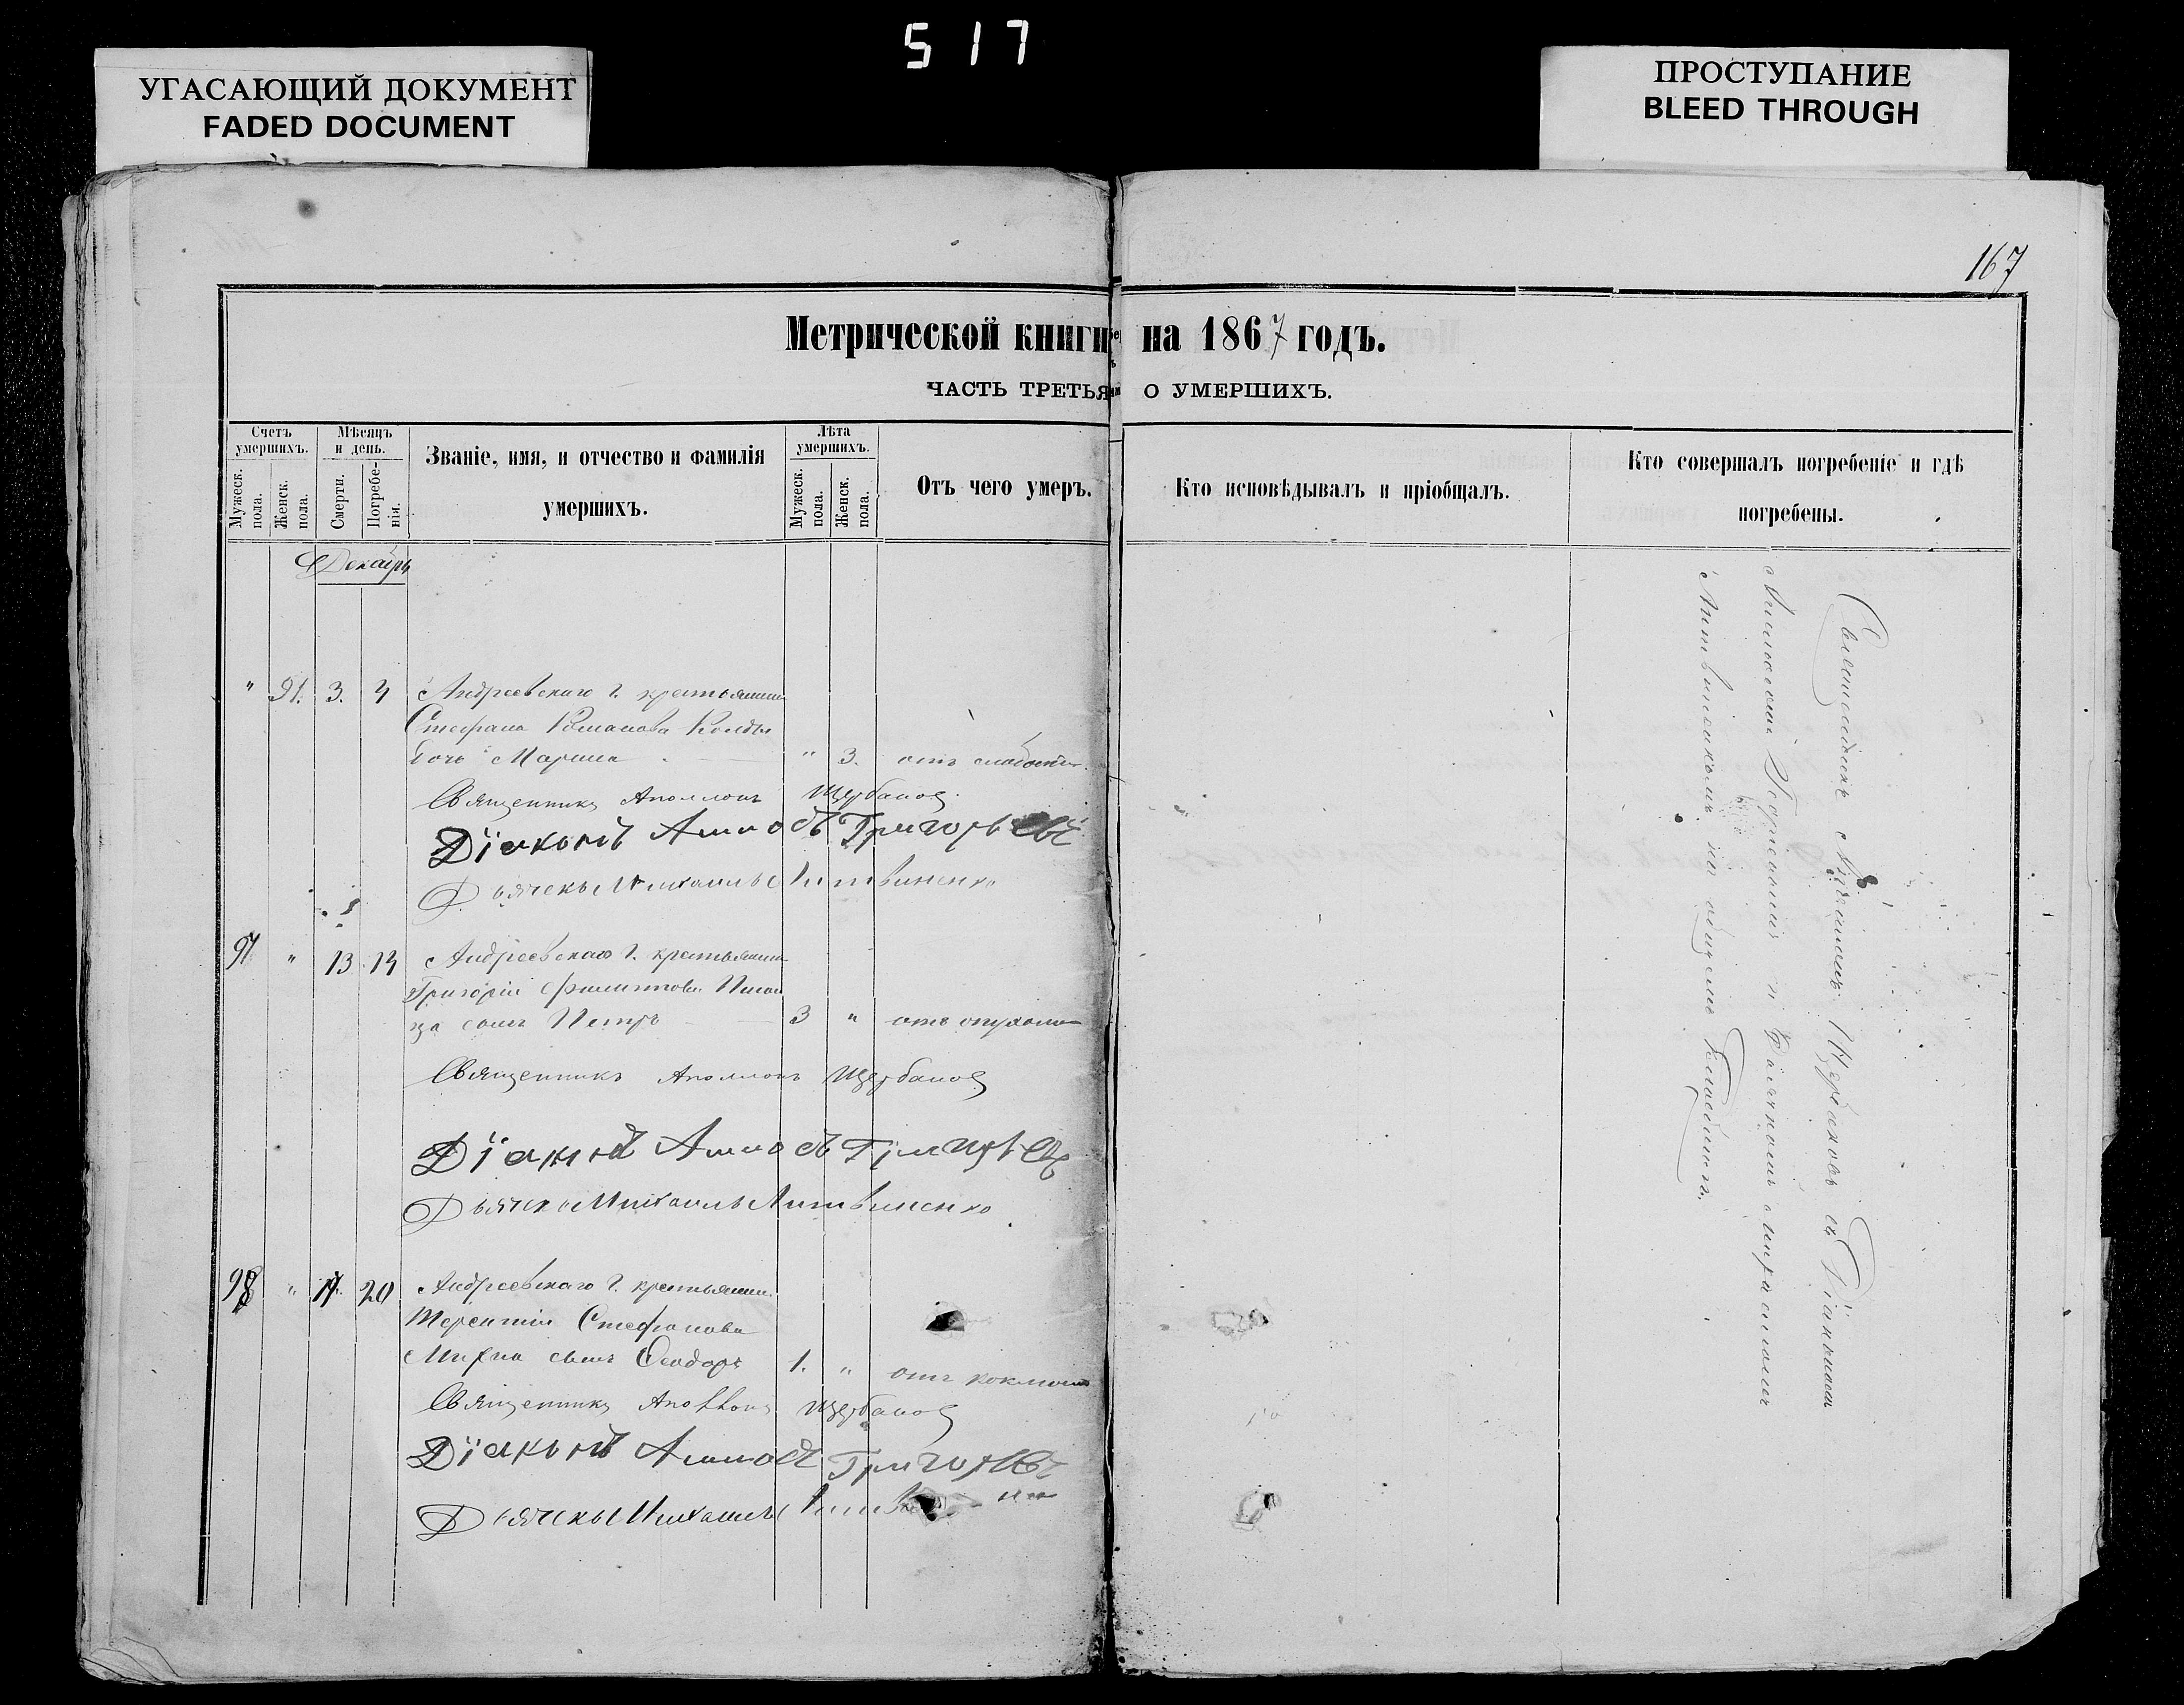 517
УГАСАЮЩИЙ ДОКУМЕНТ
FADED DOCUMENT
ПРОСТУПАНИЕ
BLEED THROUGH
167
Метрической книги на 1867 годъ.
ЧАСТЬ ТРЕТЬЯ О УМЕРШИХЪ.
Счетъ умершихъ.
Мужеск. пола.
Женск. пола.
Мѣсяцъ и день.
Смерти.
Погребенія.
Званіе, имя, и отчество и фамилія
умершихъ.
Лѣта умершихъ.
Мужеск. пола.
Женск. пола.
Отъ чего умеръ.
Кто исповѣдывалъ и пріобщалъ.
Кто совершалъ погребеніе и гдѣ
погребены.
Декабрь
" 91. 3. 4 Андреевскаго г. крестьянина
Стефана Романова
дочь Марина " 3. отъ слабости
Священникъ Аполлонъ Щербаковъ
Діаконъ Григорьевъ
Дьячекъ Михаилъ Литвиненко
97 " 13 14 Андреевскаго г. крестьянина
Григорія Филиппова
сынъ Петръ 3 " отъ опухоли
Священникъ Аполлонъ Щербаковъ
Діаконъ Григорьевъ
Дьячекъ Михаилъ Литвиненко
98 " 20 Андреевскаго г. крестьянина
Терентія Стефанова
сынъ Ѳеодоръ 1. " отъ коклюша
Священникъ Аполлонъ Щербаковъ
Діаконъ Григорьевъ
Дьячекъ Михаилъ
Священникъ Щербаковъ съ Діакономъ
Григорьевымъ и Дьячкомъ Михаиломъ
Литвиненкомъ на общемъ кладбищѣ.